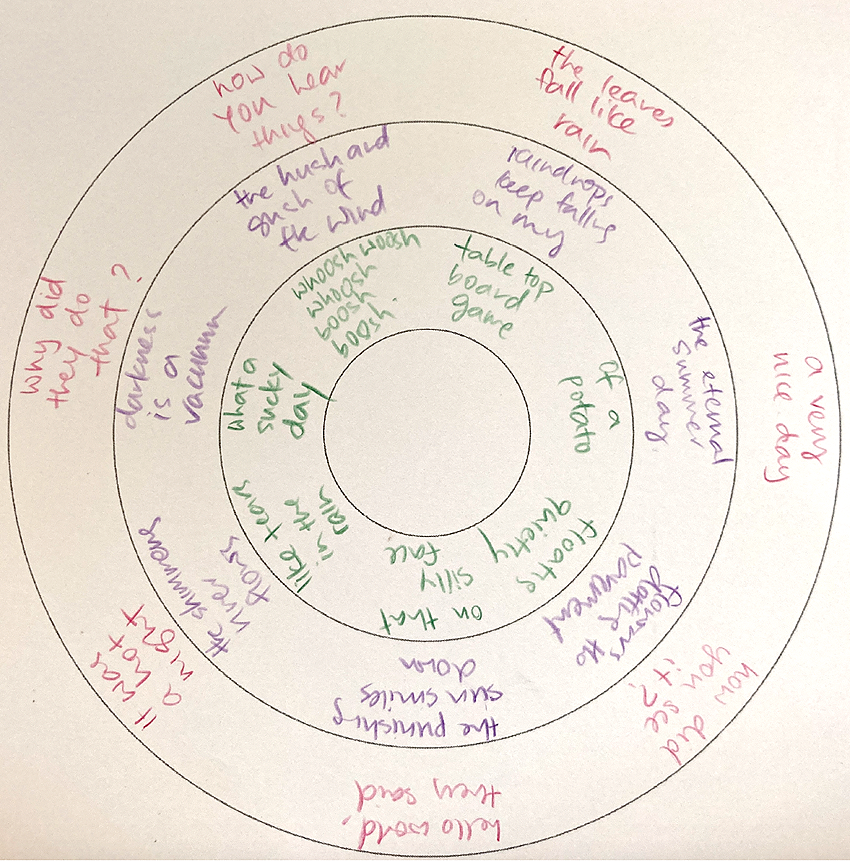 how do
you hear
things?
the leaves
fall like
rain
a very
nice day
how did
you see
it?
hello world,
they said
it was
a hot
night
why did
they do
that?
the hush and
such of
the wind
raindrops
keep falling
on my
the eternal
summer
day.
flowers
dotting the
pavement
the punishing
sun smiles
down
the shimmering
river
flows
darkness
is a
vacuum
whoosh woosh
whoosh
boosh
bogsh
table top
board
game
of a
potato
floating
quietly
on that
silly
face
like tears
in the
rain
what a
sucky
day